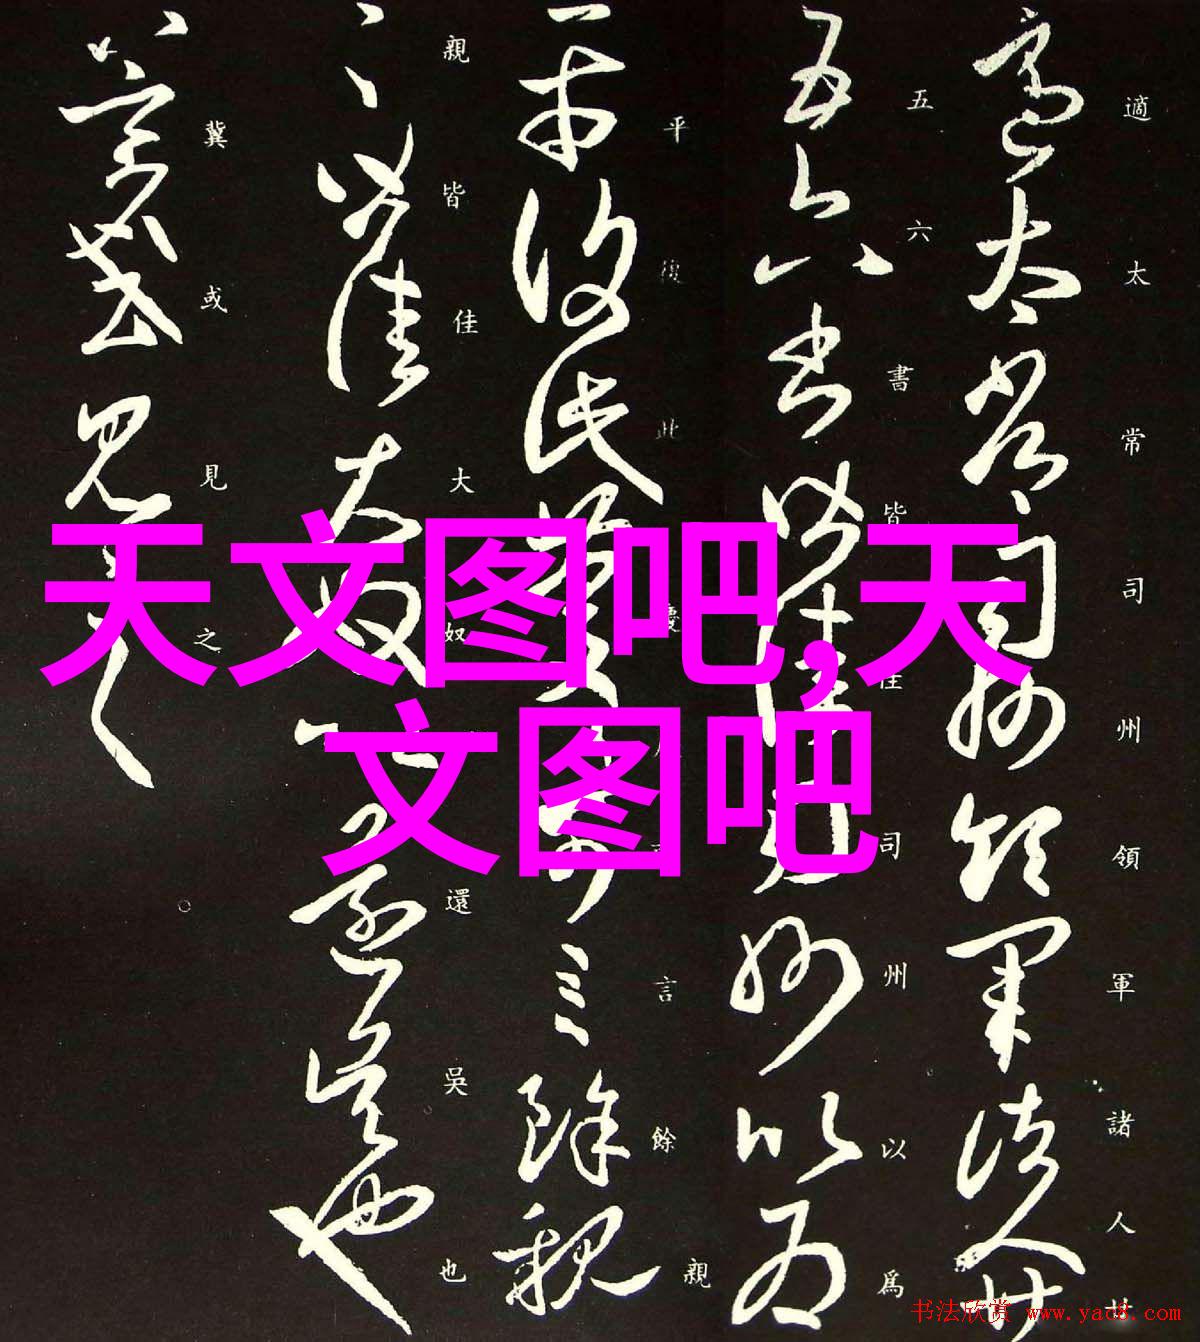 適太常司州領軍諸人廿
五六書皆佳司州以爲
平復此慶慶可言餘親
親皆佳大奴以還吳也
冀或見之
天文图吧,天
文图吧
书法欣赏 www.yac8.com